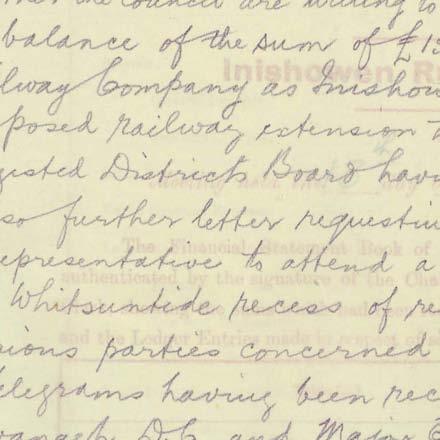 the council are willing to
balance of the sum of £15
lway Company as Inishow
posed railway extension
gested Districts Board havin
so further letter requestin
epresentative to attend a
Whitsuntide recess of re
ious parties concerned
elegrams having been rec
and Major
Inishowen R
The Financial Statement Book of
authenticated by the signature of the Cha
and the Ledger Entries made in respect of